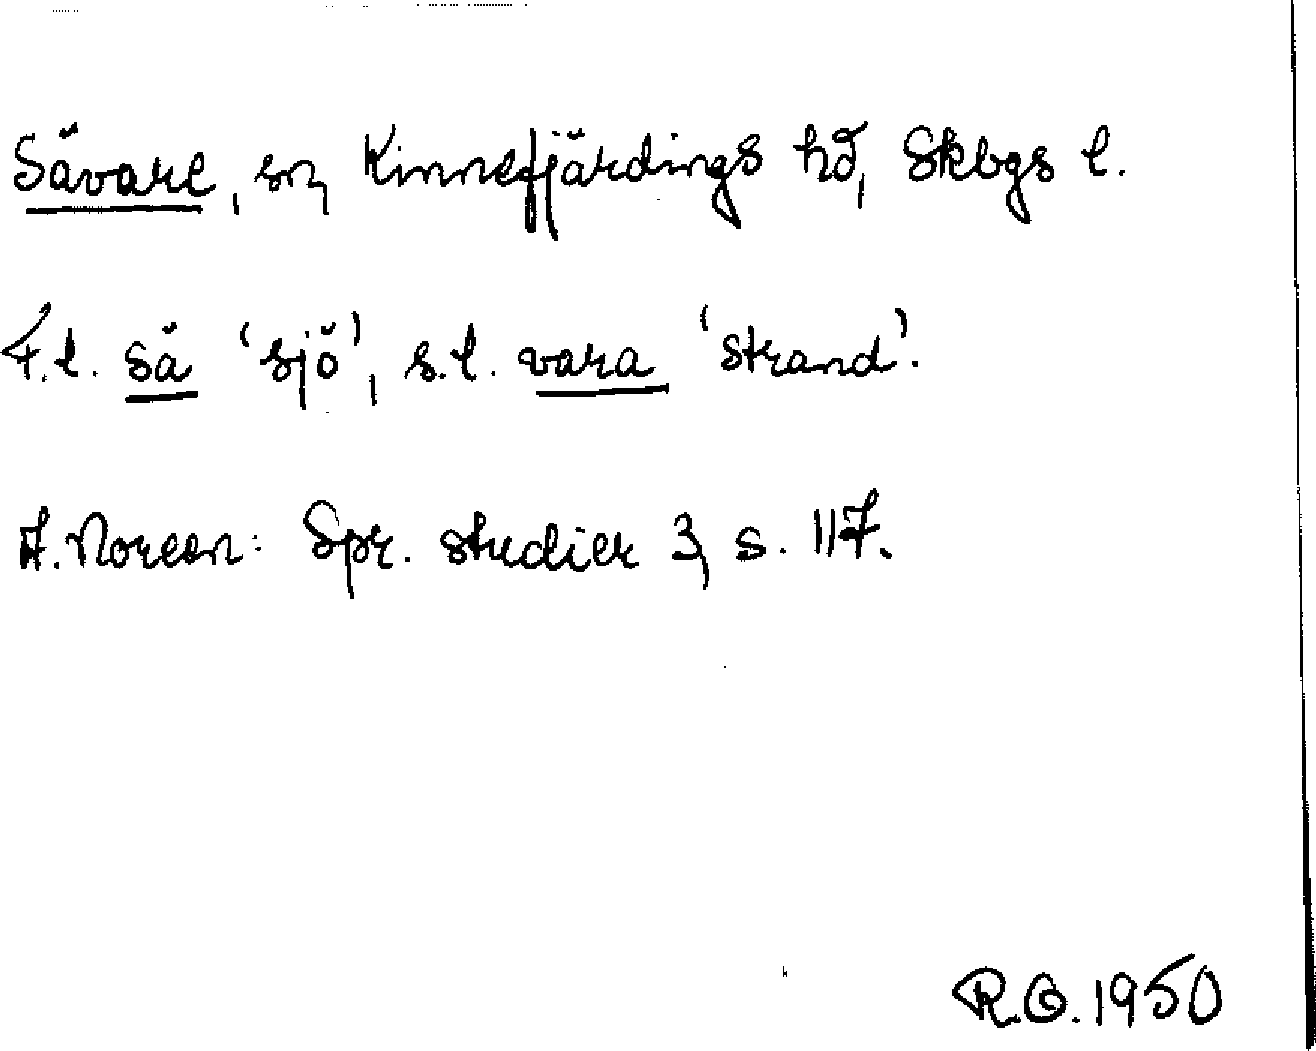 Sävare, sn, Kinnefjärdings hd, Skbgs l.
F.l. sä 'sjö', s.l. vara 'strand'.
A. Noreen: Spr. studier 3, s. 117.
R.O. 1950